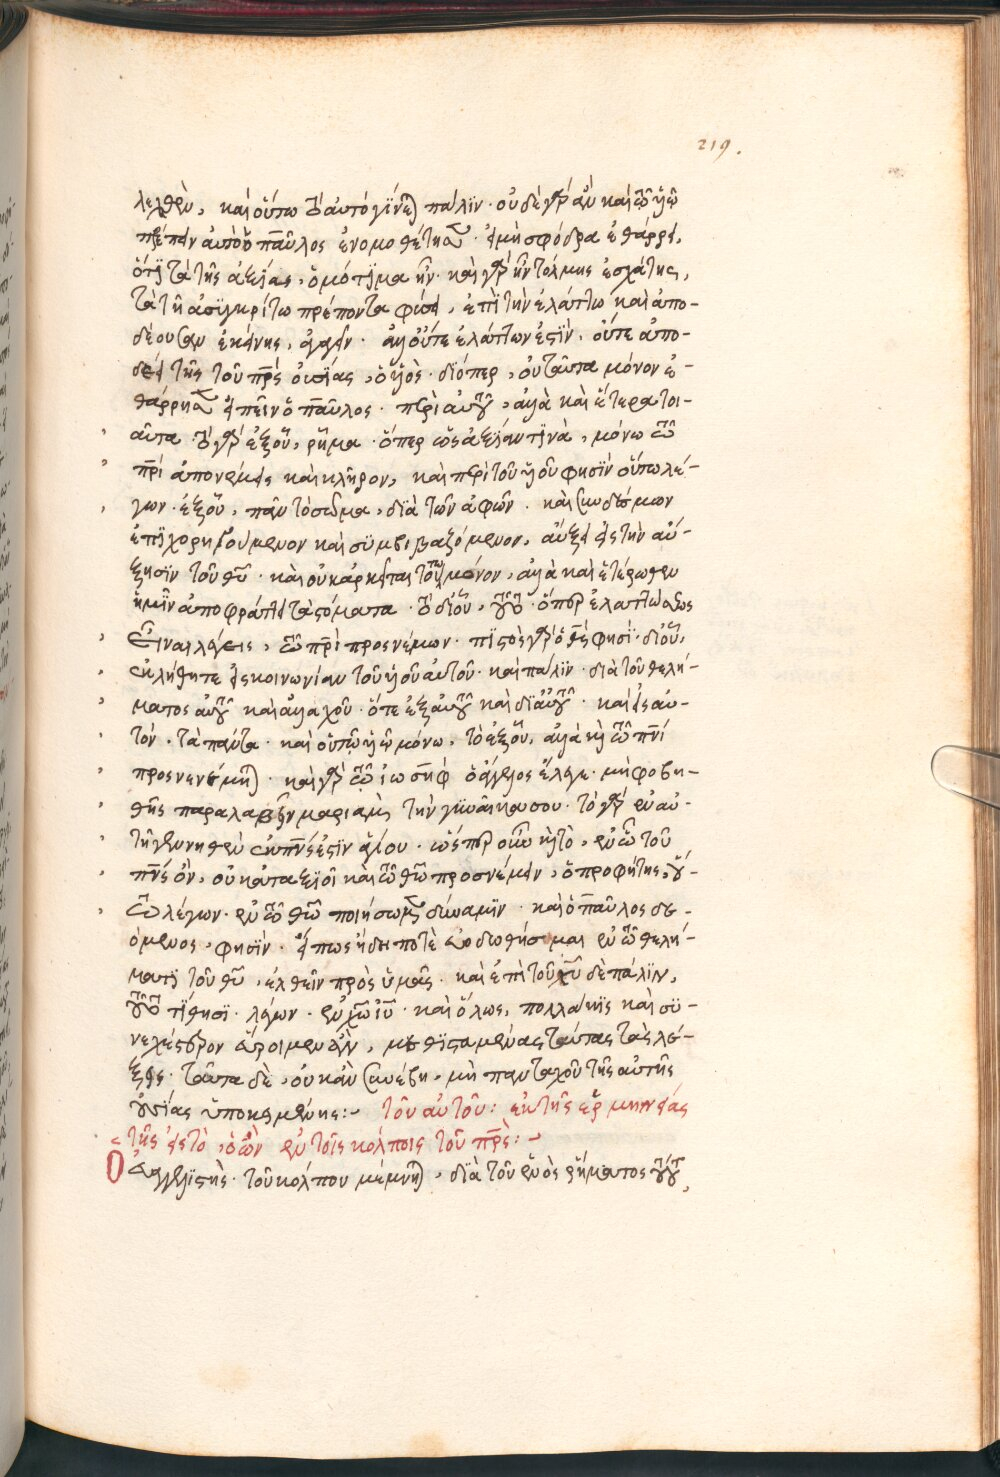 219.
λεχθὲν, καὶ οὕτω τὸ αὐτὸ γίνεται πάλιν· οὐδὲ γὰρ ἂν καὶ τῶ ὑιῶ
πρέπειν αὐτὸ ὁ παῦλος ἐνομοθέτησεν· εἰ μὴ σφόδρα ἐθάρρει,
ὅτι τὰ τῆς ἀξίας, ὁμότιμα ἦν· καὶ γὰρ ἦν τόλμης ἐσχάτης,
τὰ τῆ ἀσυγκρίτω πρέποντα φύσει, ἐπὶ τὴν ἐλάττω καὶ ἀπο-
δέουσαν ἐκείνης, ἄγειν· ἀλλ' οὔτε ἐλάττων ἐστὶν, οὔτε ἀπο-
δεῖ τῆς τοῦ πρς οὐσίας, ὁ ὑιὸς· διόπερ, οὐ ταῦτα μόνον ἐ-
θάρρησεν εἰπεῖν ὁ παῦλος περὶ αὐτοῦ, ἀλλὰ καὶ ἕτερα τοι-
αῦτα· τὸ γὰρ ἐξ οὗ, ῥῆμα· ὅπερ ὡς ἀξίαν τινὰ, μόνω τῶ
πρι ἀπονέμεις καὶ κλῆρον, καὶ περὶ τοῦ ὑιοῦ φησὶν οὕτω λέ-
γων· ἐξ οὗ, πᾶν τὸ σῶμα, διὰ τῶν ἁφῶν· καὶ συνδέσμων
ἐπιχορηγούμενον καὶ συμβιβαζόμενον, αὔξει εἰς τὴν αὔ-
ξησιν τοῦ θυ· καὶ οὐκ ἀρκεῖται τούτω μόνον, ἀλλὰ καὶ ἑτέρωθεν
ἡμῖν ἀποφράττει τὰ στόματα· τὸ δι' οὗ, τοῦτο· ὅπερ ἐλαττώσεως
εἶναι λέγεις, τῶ πρι προσνέμων· πιστὸς γὰρ ὁ θς φησὶ· δι' οὗ,
ἐκλήθητε εἰς κοινωνίαν τοῦ ὑιοῦ αὐτοῦ· καὶ πάλιν· διὰ τοῦ θελή-
ματος αὐτοῦ· καὶ ἀλλαχοῦ· ὅτε ἐξ αὐτοῦ καὶ δι' αὐτοῦ· καὶ εἰς αὐ-
τόν· τὰ πάντα· καὶ οὔπω ὑιῶ μόνω, τὸ ἐξ οὗ, ἀλλὰ καὶ τῶ πνι
προσνενέμηται· καὶ γὰρ τῶ ἰωσηφ ὁ ἄγγελος ἔλεγε· μὴ φοβη-
θῆς παραλαβεῖν μαριὰμ, τὴν γυναῖκα σου· τὸ γὰρ ἐν αὐ-
τῆ γεννηθὲν ἐκ πνς ἐστὶν ἁγίου· ὥσπερ οὖν καὶ τὸ, ἐν ὧ τοῦ
πνς ὂν, οὐκ ἀπαξιοῖ καὶ τῶ θῶ προσνέμειν, ὁ προφήτης, οὕ-
τω λέγων· ἐν τῶ θῶ ποιήσωμεν δύναμιν· καὶ ὁ παῦλος δε-
όμενος, φησὶν· εἴπως ἤδη ποτὲ εὐοδωθήσομαι ἐν τῶ θελή-
ματι τοῦ θυ, ἐλθεῖν πρὸς ὑμᾶς· καὶ ἐπὶ τοῦ χυ δὲ πάλιν,
τοῦτο τίθησι· λέγων· ἐν χω ιυ· καὶ ὅλως, πολλάκις καὶ συ-
νεχέστερον εὕροιμεν ἂν, μεθισταμένας ταύτας τὰς λέ-
ξεις· ταῦτα δὲ, οὐκ ἂν συνέβη, μὴ πανταχοῦ τῆς αὐτῆς
οὐσίας ὑποκειμένης:- τοῦ αὐτοῦ: ἐκ τῆς ἑρμηνείας
τῆς εἰς τὸ, ὁ ὢν ἐν τοῖς κόλποις τοῦ πρς:-
Ὁ εὐαγγελιστὴς· τοῦ κόλπου μέμνηται, διὰ τοῦ ἑνὸς ῥήματος τούτου,